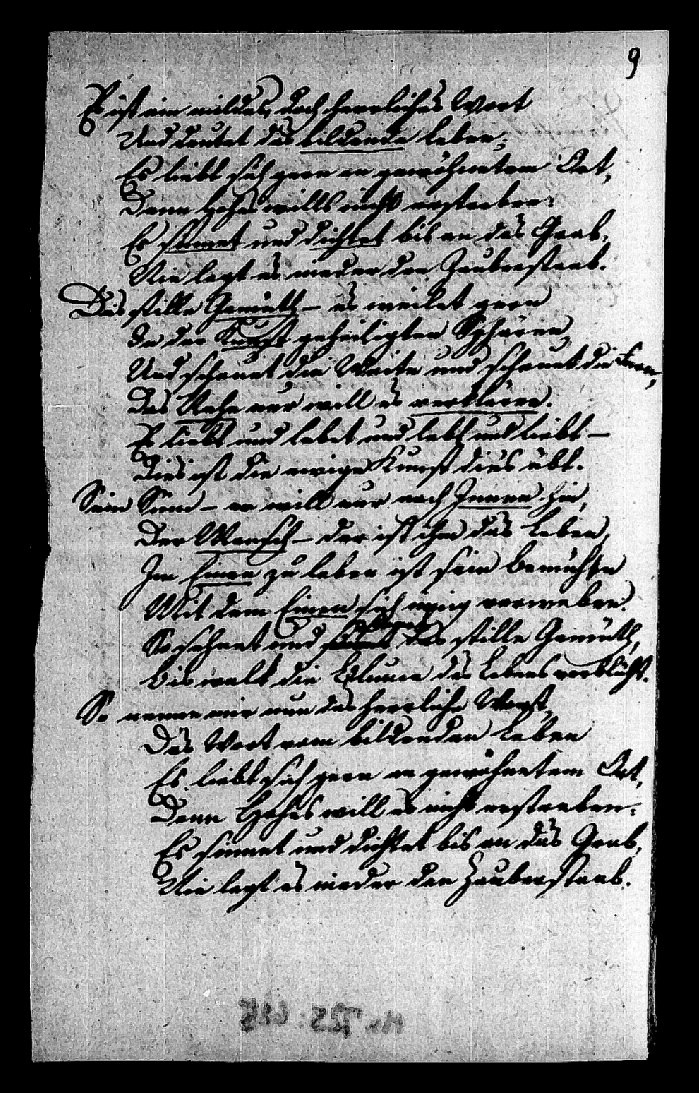 9
Es ist ein mildes, doch herrliches Wort
Und deutet das bildende Leben,
Es liebt sich gern an gewöhnetem Ort,
Denn Hohes will's nicht erstreben:
Es sinnet und dichtet bis an das Grab,
Nie legt es nieder den Zauberstab.
Das stille Gemüth – es weilet gern
In der Kunst geheiligten Sphären,
Und schauet die Weite und schauet die Fern,
Das Nahe nur will es verklären.
Es liebt und lebet und lebt und liebt –
Dies ist die ewige Kunst dies übt.
Sein Sinn – er will nur nach Innen hin,
Der Mensch – der ist ihm das Leben,
Im Einen zu leben ist sein Bemühn
Mit dem Einen sich innig verweben.
So sehnet und das stille Gemüth,
bis welk die Blume des Lebens verblüht.
So nenne mir nun das herrliche Wort,
Das Wort vom bildenden Leben
Es liebt sich gern an gewöhnetem Ort,
Denn Hohes will es nicht erstreben:
Es sinnet und dichtet bis an das Grab,
Nie legt es nieder den Zauberstab.